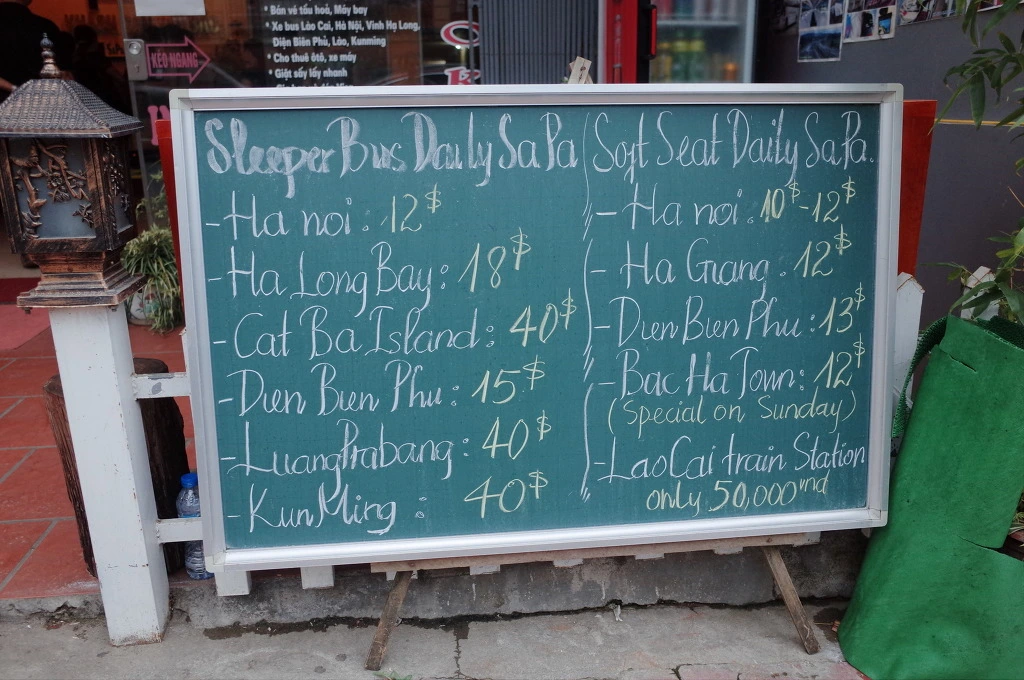 * Bán vé tàu hoả, Máy bay
* Xe bus Lào Cai, Hà Nội, Vinh Hạ Long,
Điện Biên Phủ, Lào, Kunming
* Cho thuê ôtô, xe máy
* Giặt sấy lấy nhanh
KÉO NGANG
Sleeper Bus Daily SaPa
- Ha noi : 12$
- Ha Long Bay : 18$
- Cat Ba Island : 40$
- Dien Bien Phu : 15$
- LuangPrabang : 40$
- KunMing : 40$
Soft Seat Daily SaPa.
- Ha noi : 10$-12$
- Ha Giang : 12$
- Dien Bien Phu : 13$
- Bac Ha Town : 12$
(Special on Sunday)
- LaoCai train Station
only 50,000 vnd